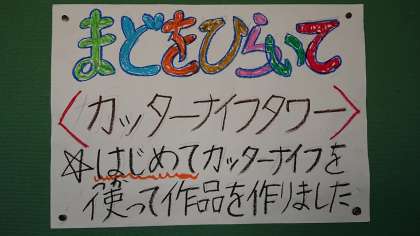 まどをひらいて
〈カッターナイフタワー〉
☆はじめてカッターナイフを
使って作品を作りました